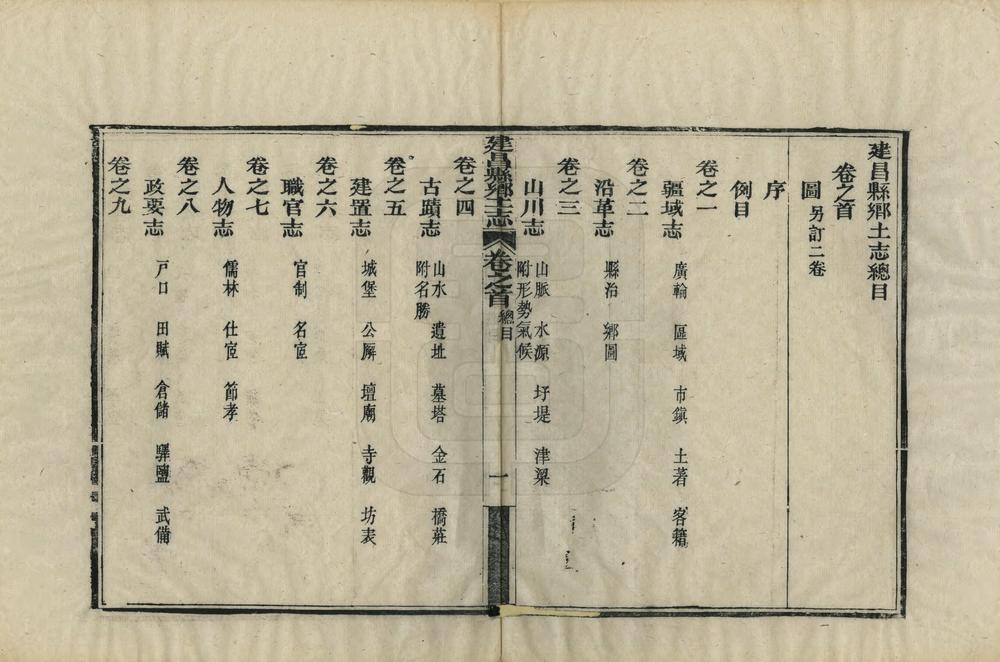 建昌縣鄉土志總目
卷之首
圖 另訂二卷
序
例目
卷之一
疆域志 廣輪 區域 市鎮 土著 客籍
卷之二
沿革志 縣治 鄉圖
卷之三
山川志 山脈 水源 圩堤 津梁
附形勢氣候
建昌縣鄉土志 卷之首 總目 一
卷之四
古蹟志 山水 遺址 墓塔 金石 橋莊
附名勝
卷之五
建置志 城堡 公廨 壇廟 寺觀 坊表
卷之六
職官志 官制 名宦
卷之七
人物志 儒林 仕宦 節孝
卷之八
政要志 戸口 田賦 倉儲 驛鹽 武備
卷之九